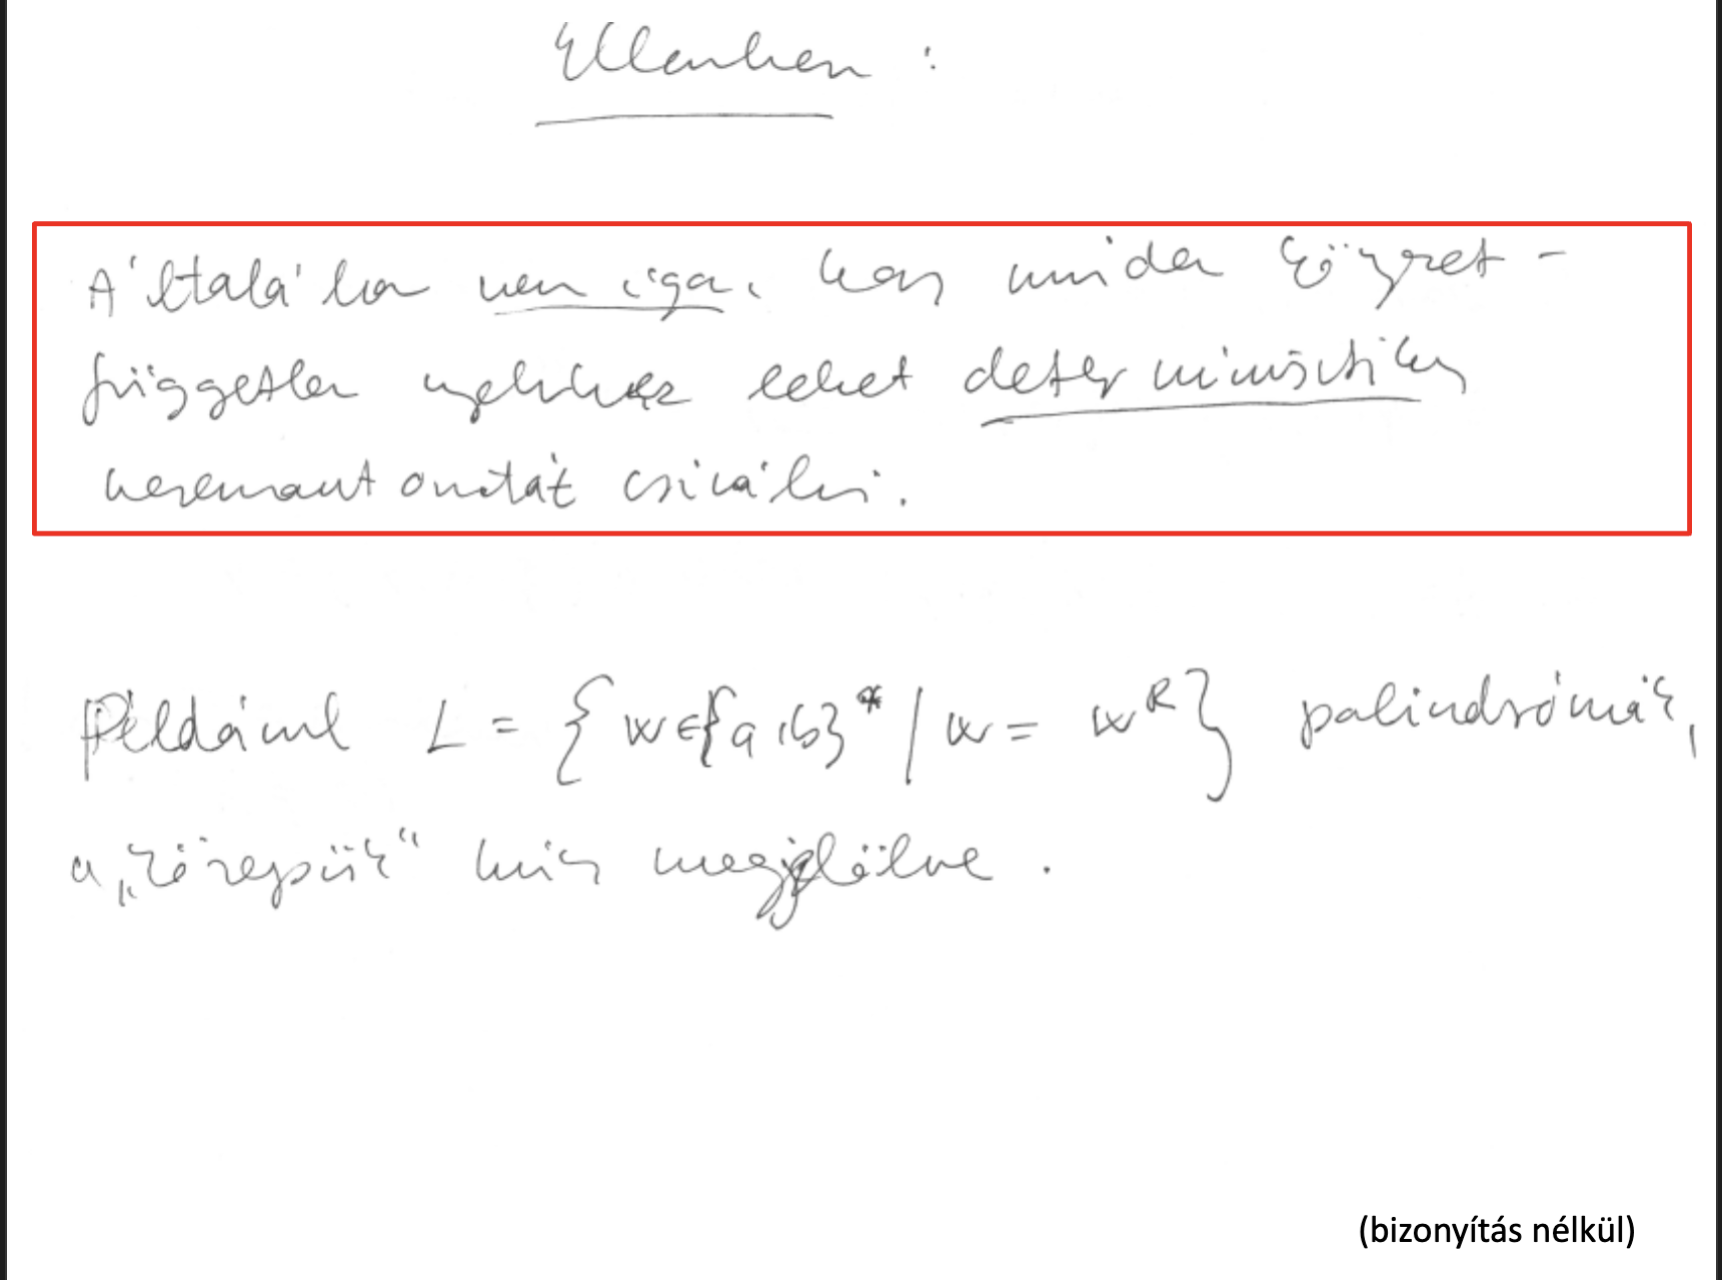 Ellenben :
Általában nem igaz, hogy minden környezet-
független nyelvhez lehet determinisztikus
veremautomatát csinálni.
Például L = { w ∈ {a,b}* | w = w^R } palindrómák,
a „közepük“ nincs megjelölve .
(bizonyítás nélkül)